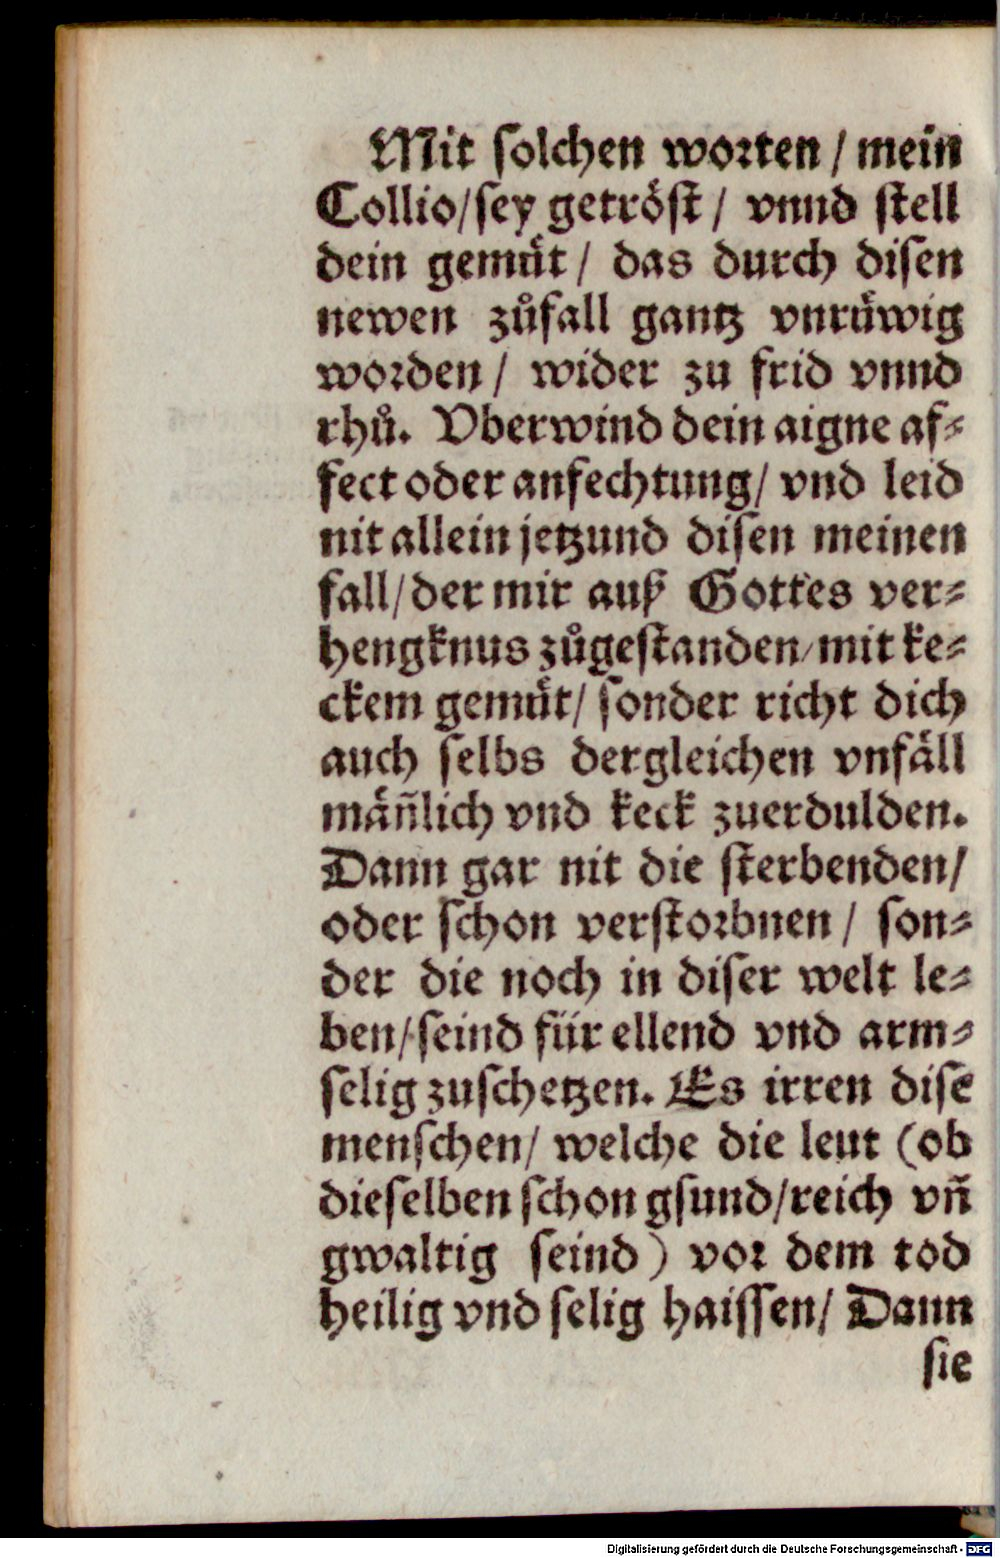 Mit solchen worten / mein
Collio / sey getröst / vnnd stell
dein gemüt / das durch disen
newen zůfall gantz vnrüwig
worden / wider zu frid vnnd
rhů. Vberwind dein aigne af⸗
fect oder anfechtung / vnd leid
nit allein jetzund disen meinen
fall / der mir auß Gottes ver⸗
hengknus zůgestanden / mit ke⸗
ckem gemüt / sonder richt dich
auch selbs dergleichen vnfäll
mäñlich vnd keck zuerdulden.
Dann gar nit die sterbenden /
oder schon verstorbnen / son⸗
der die noch in diser welt le⸗
ben / seind für ellend vnd arm⸗
selig zuschetzen. Es irren dise
menschen / welche die leut (ob
dieselben schon gsund / reich vñ
gwaltig seind) vor dem tod
heilig vnd selig haissen / Dann
sie
Digitalisierung gefördert durch die Deutsche Forschungsgemeinschaft - DFG